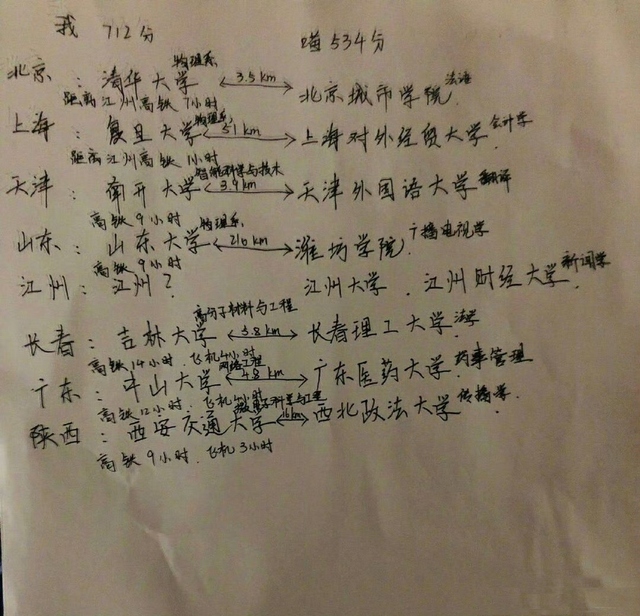 我 712分 喵 534分
物理系
北京：清华大学 ←3.5km→ 北京城市学院
距离江州高铁7小时
物理系
上海：复旦大学 ←31km→ 上海对外经贸大学 会计学
距离江州高铁1小时
智能科学与技术
天津：南开大学 ←3.9km→ 天津外国语大学 翻译
高铁9小时 物理系
山东：山东大学 ←216km→ 潍坊学院 广播电视学
高铁9小时
江州：江州？ 江州大学．江州财经大学 新闻学
高分子材料与工程
长春：吉林大学 ←3.8km→ 长春理工大学
高铁14小时．飞机4小时
网络工程
广东：中山大学 ←48km→ 广东医药大学 药事管理
高铁12小时．飞机
陕西：西安交通大学 ←16km→ 西北政法大学 传播学
高铁9小时．飞机3小时